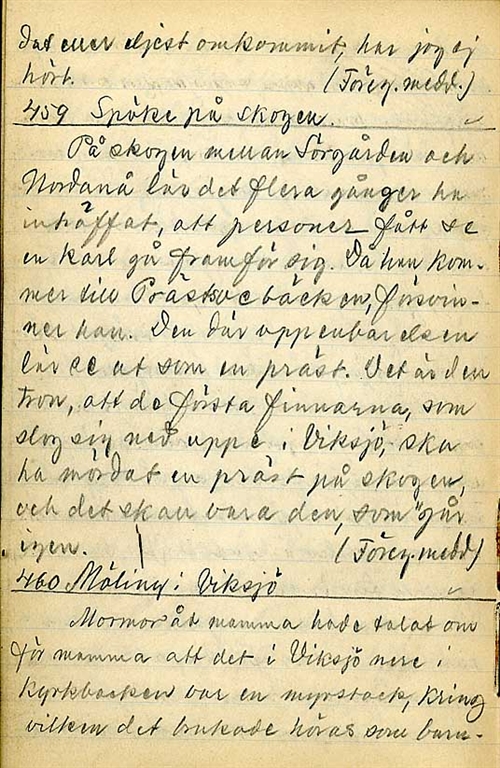 dat eller eljest omkommit, har jag ej
hört. (Föreg. medd.)
459 Spöke på skogen.
På skogen mellan Sörgården och
Nordanå lär det flera gånger ha
inträffat, att personer fått se
en karl gå framför sig. Då han kom-
mer till Prästsvebäcken, försvin-
ner han. Den där uppenbarelsen
lär se ut som en präst. Det är den
tron, att de första finnarna, som
slog sig ned uppe i Viksjö, ska
ha mördat en präst på skogen,
och det skall vara den, som "går
igen. (Föreg. medd)
460 Möling i Viksjö
Mormor åt mamma hade talat om
för mamma att det i Viksjö nere i
kyrkbacken var en myrstack, kring
vilken det brukade höras som barn-